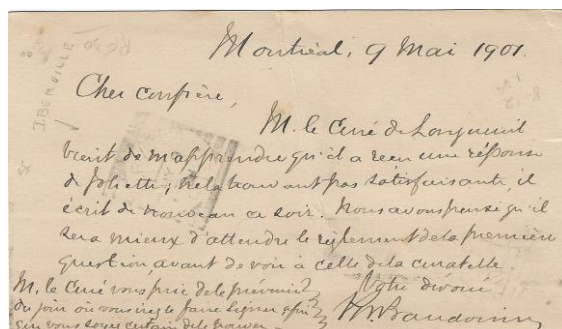 Montréal, 9 Mai 1901.
Cher confrère,
M. le Curé de Longueuil
vient de m'apprendre qu'il a reçu une réponse
de Joliette; ne la trouvant pas satisfaisante, il
écrit de nouveau ce soir. Nous avons pensé qu'il
sera mieux d'attendre le règlement de la première
question avant de voir à celle de la curatelle
Votre dévoué
M. le Curé vous prie de le prévenir
du jour où vous irez le faire signer afin
que vous soyez certain de le trouver
IBERVILLE